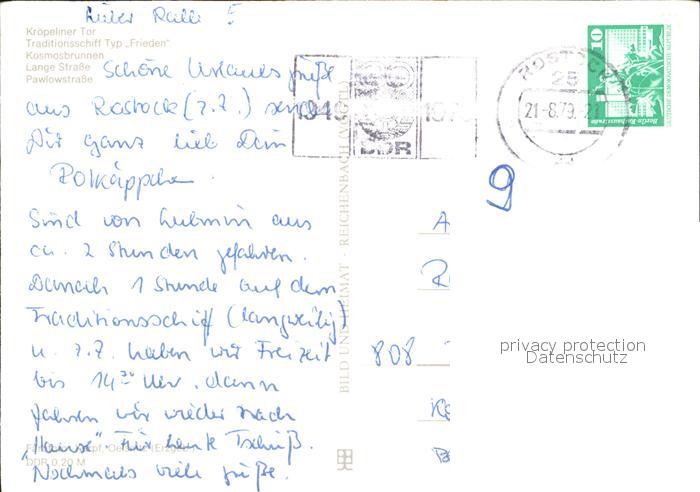 Lieber Ralle!
Kröpeliner Tor
Traditionsschiff Typ „Frieden"
Kosmosbrunnen
Lange Straße
Pawlowstraße
Schöne Urlaubsgrüße
aus Rostock (z.Z.) sendet
Dir ganz lieb Dein
Rotkäppchen.
Sind von Lubmin aus
ca. 2 Stunden gefahren.
Danach 1 Stunde auf dem
Traditionsschiff (langweilig)
u. z.Z. haben wir Freizeit
bis 14³⁰ Uhr, dann
fahren wir wieder nach
„Hause". Für heute Tschüß.
Nochmals viele Grüße.
DDR 0,20 M
BILD UND HEIMAT · REICHENBACH (VOGTL)
1949
DDR
ROSTOCK
25
21.-8.79.-21
10
9
808
privacy protection
Datenschutz